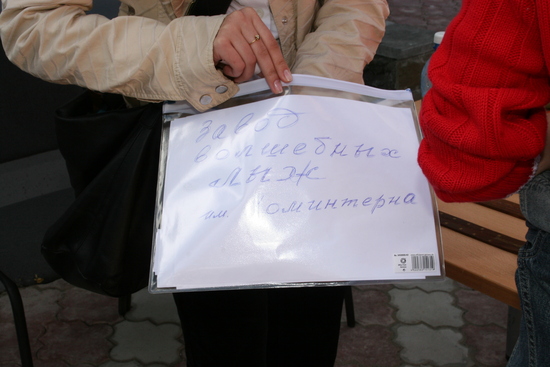 Завод
волшебных
лыж
им. Коминтерна